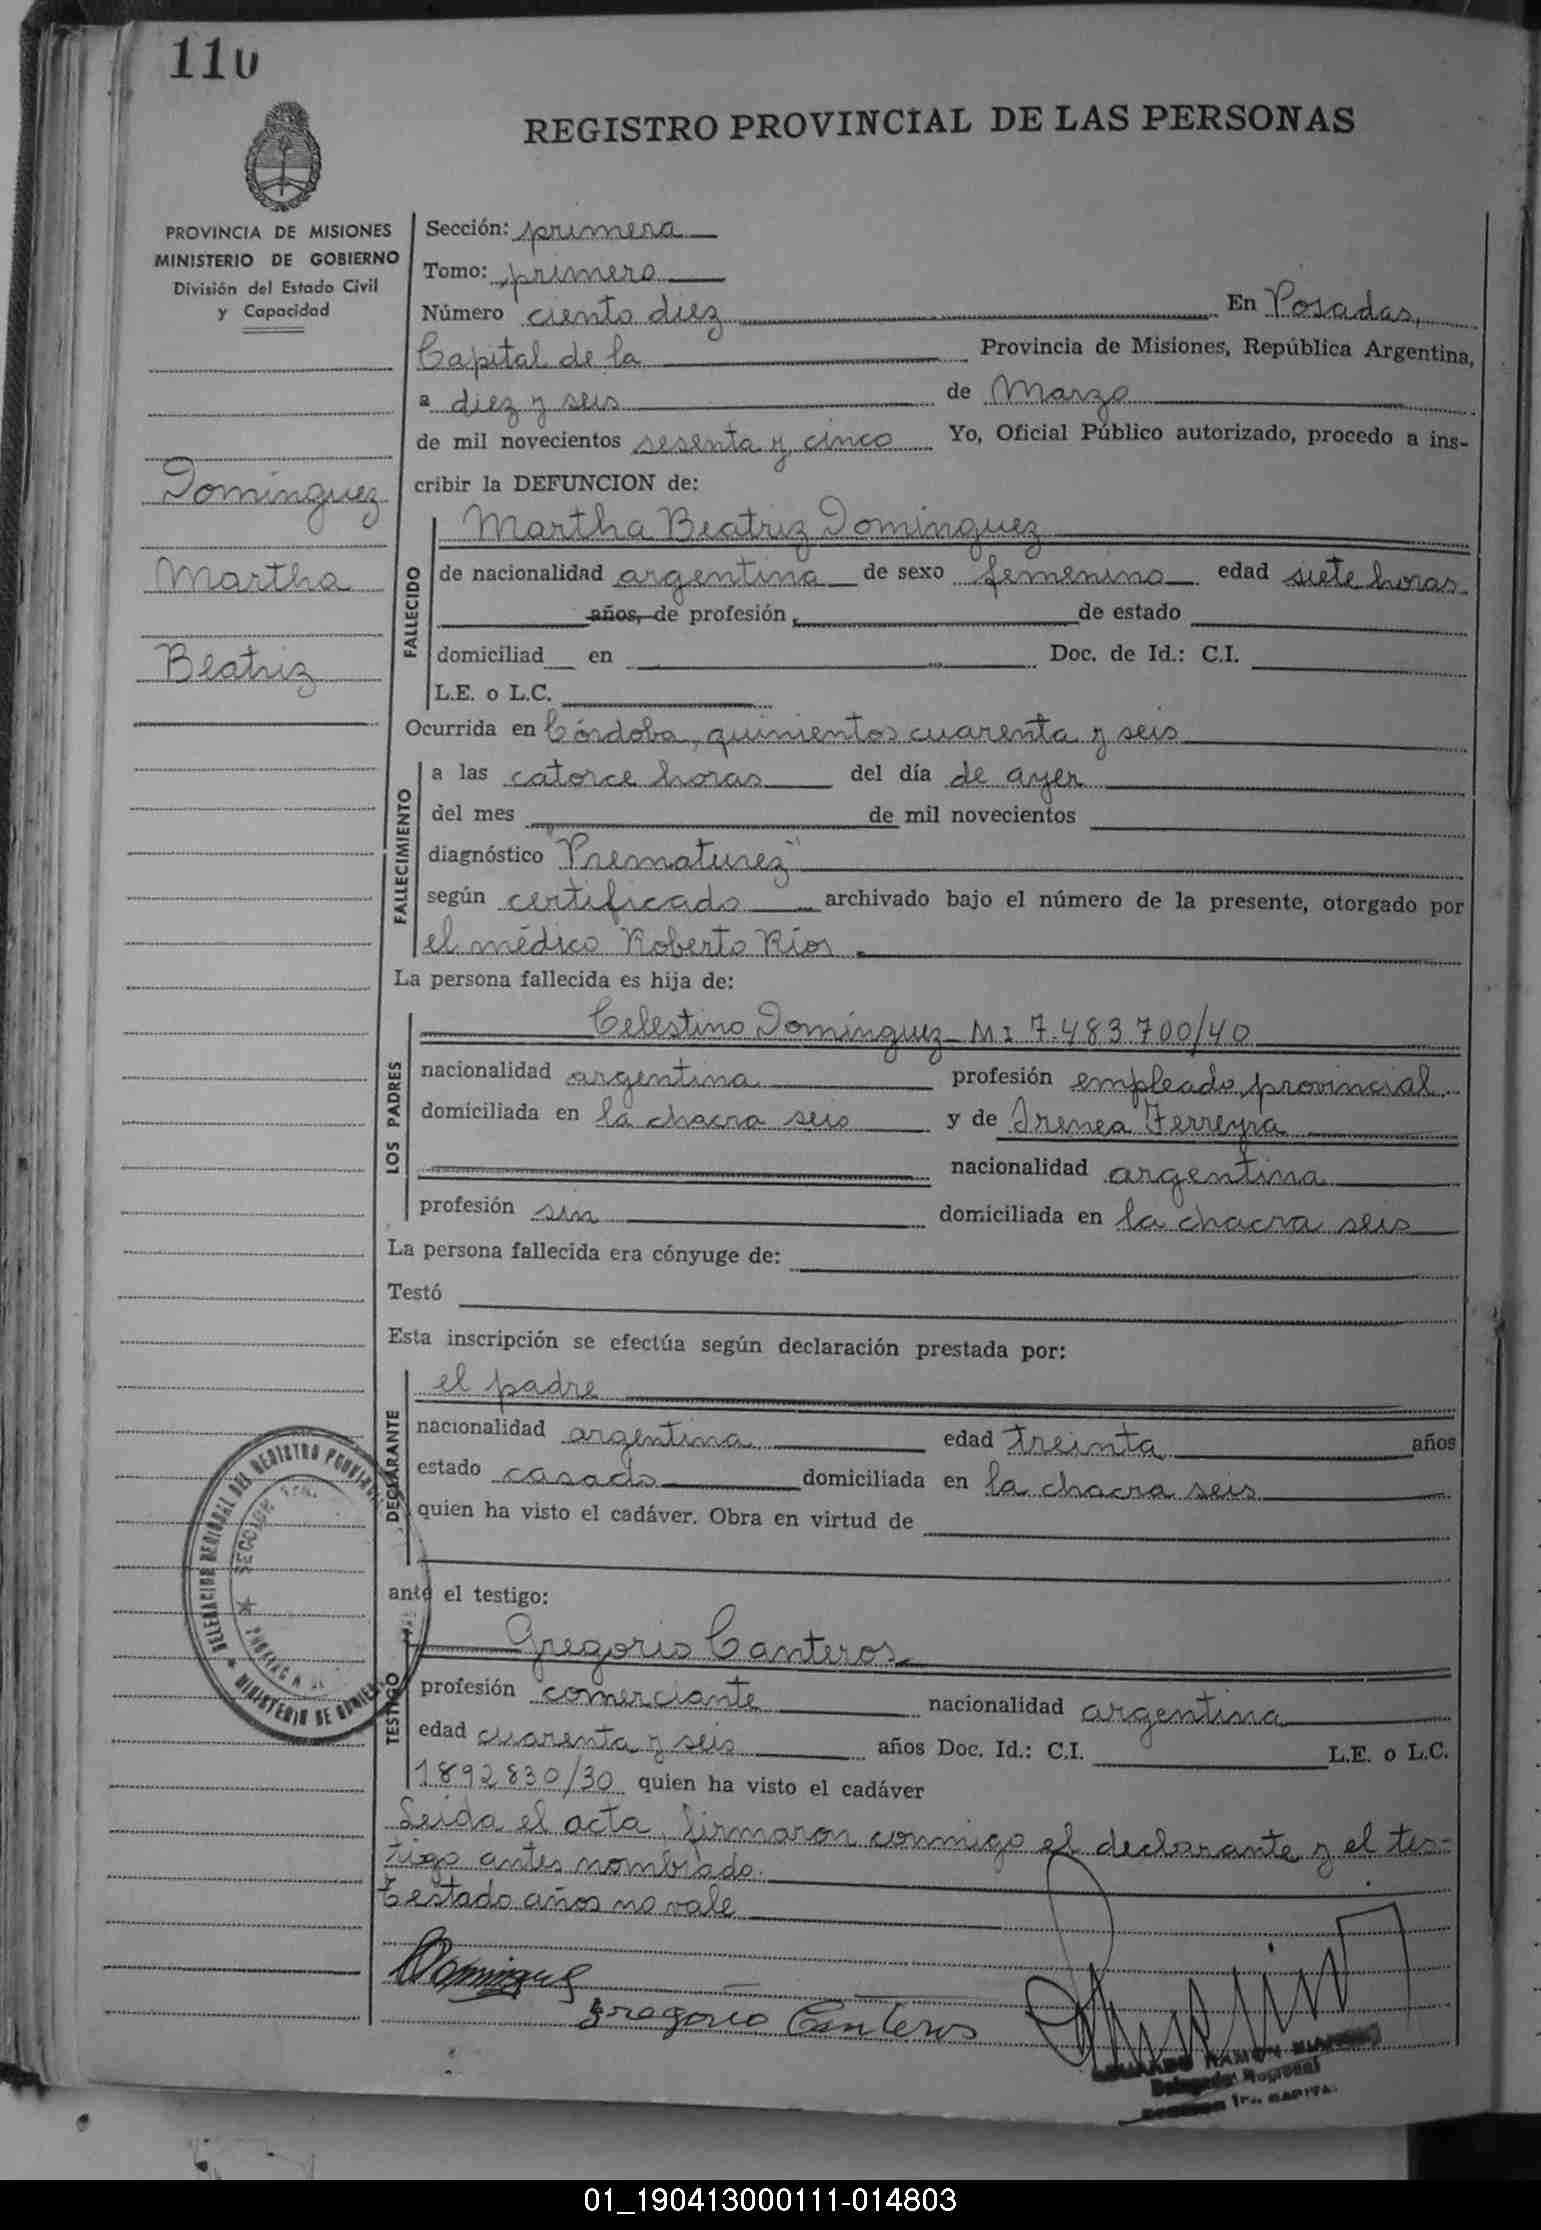 110
REGISTRO PROVINCIAL DE LAS PERSONAS
PROVINCIA DE MISIONES
MINISTERIO DE GOBIERNO
División del Estado Civil
y Capacidad
Dominguez
Martha
Beatriz
Sección: primera
Tomo: primero
Número ciento diez En Posadas,
Capital de la Provincia de Misiones, República Argentina,
a diez y seis de Marzo
de mil novecientos sesenta y cinco Yo, Oficial Público autorizado, procedo a ins-
cribir la DEFUNCION de:
FALLECIDO
Martha Beatriz Dominguez
de nacionalidad argentina de sexo femenino edad siete horas
años, de profesión de estado
domiciliad en Doc. de Id.: C.I.
L.E. o L.C.
Ocurrida en Córdoba, quinientos cuarenta y seis
FALLECIMIENTO
a las catorce horas del día de ayer
del mes de mil novecientos
diagnóstico "Prematurez"
según certificado archivado bajo el número de la presente, otorgado por
el médico Roberto Ríos
La persona fallecida es hija de:
LOS PADRES
Celestino Domínguez MI 7.483.700/40
nacionalidad argentina profesión empleado provincial
domiciliada en la chacra seis y de Irenea Ferreyra
nacionalidad argentina
profesión sin domiciliada en la chacra seis
La persona fallecida era cónyuge de:
Testó
Esta inscripción se efectúa según declaración prestada por:
DECLARANTE
el padre
nacionalidad argentina edad treinta años
estado casado domiciliada en la chacra seis
quien ha visto el cadáver. Obra en virtud de
ante el testigo:
TESTIGO
Gregorio Canteros
profesión comerciante nacionalidad argentina
edad cuarenta y seis años Doc. Id.: C.I. L.E. o L.C.
1892830/30 quien ha visto el cadáver
Leida el acta, firmaron conmigo el declarante y el tes-
tigo antes nombrado.
Testado años no vale
Dominguez
Gregorio Canteros
DELEGACION REGIONAL DEL REGISTRO PROVINCIAL
SECCION
MINISTERIO DE
RAMON
Delegado Regional
01_190413000111-014803